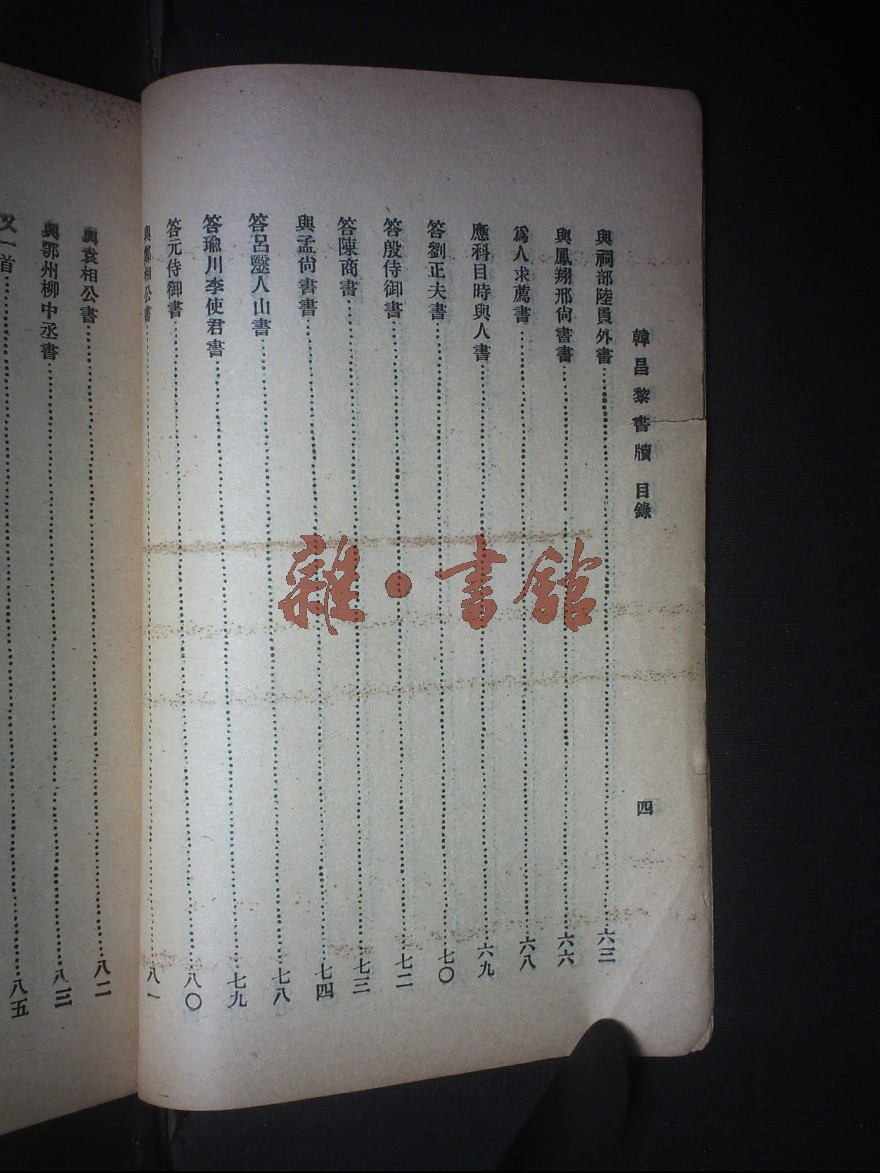 韓昌黎書牘 目錄 四
與祠部陸員外書 六三
與鳳翔邢尙書書 六六
爲人求薦書 六八
應科目時與人書 六九
答劉正夫書 七〇
答殷侍御書 七二
答陳商書 七三
與孟尙書書 七四
答呂毉人山書 七八
答瑜川李使君書 七九
答元侍御書 八〇
與鄭相公書 八一
與袁相公書 八二
與鄂州柳中丞書 八三
又一首 八五
雜・書館